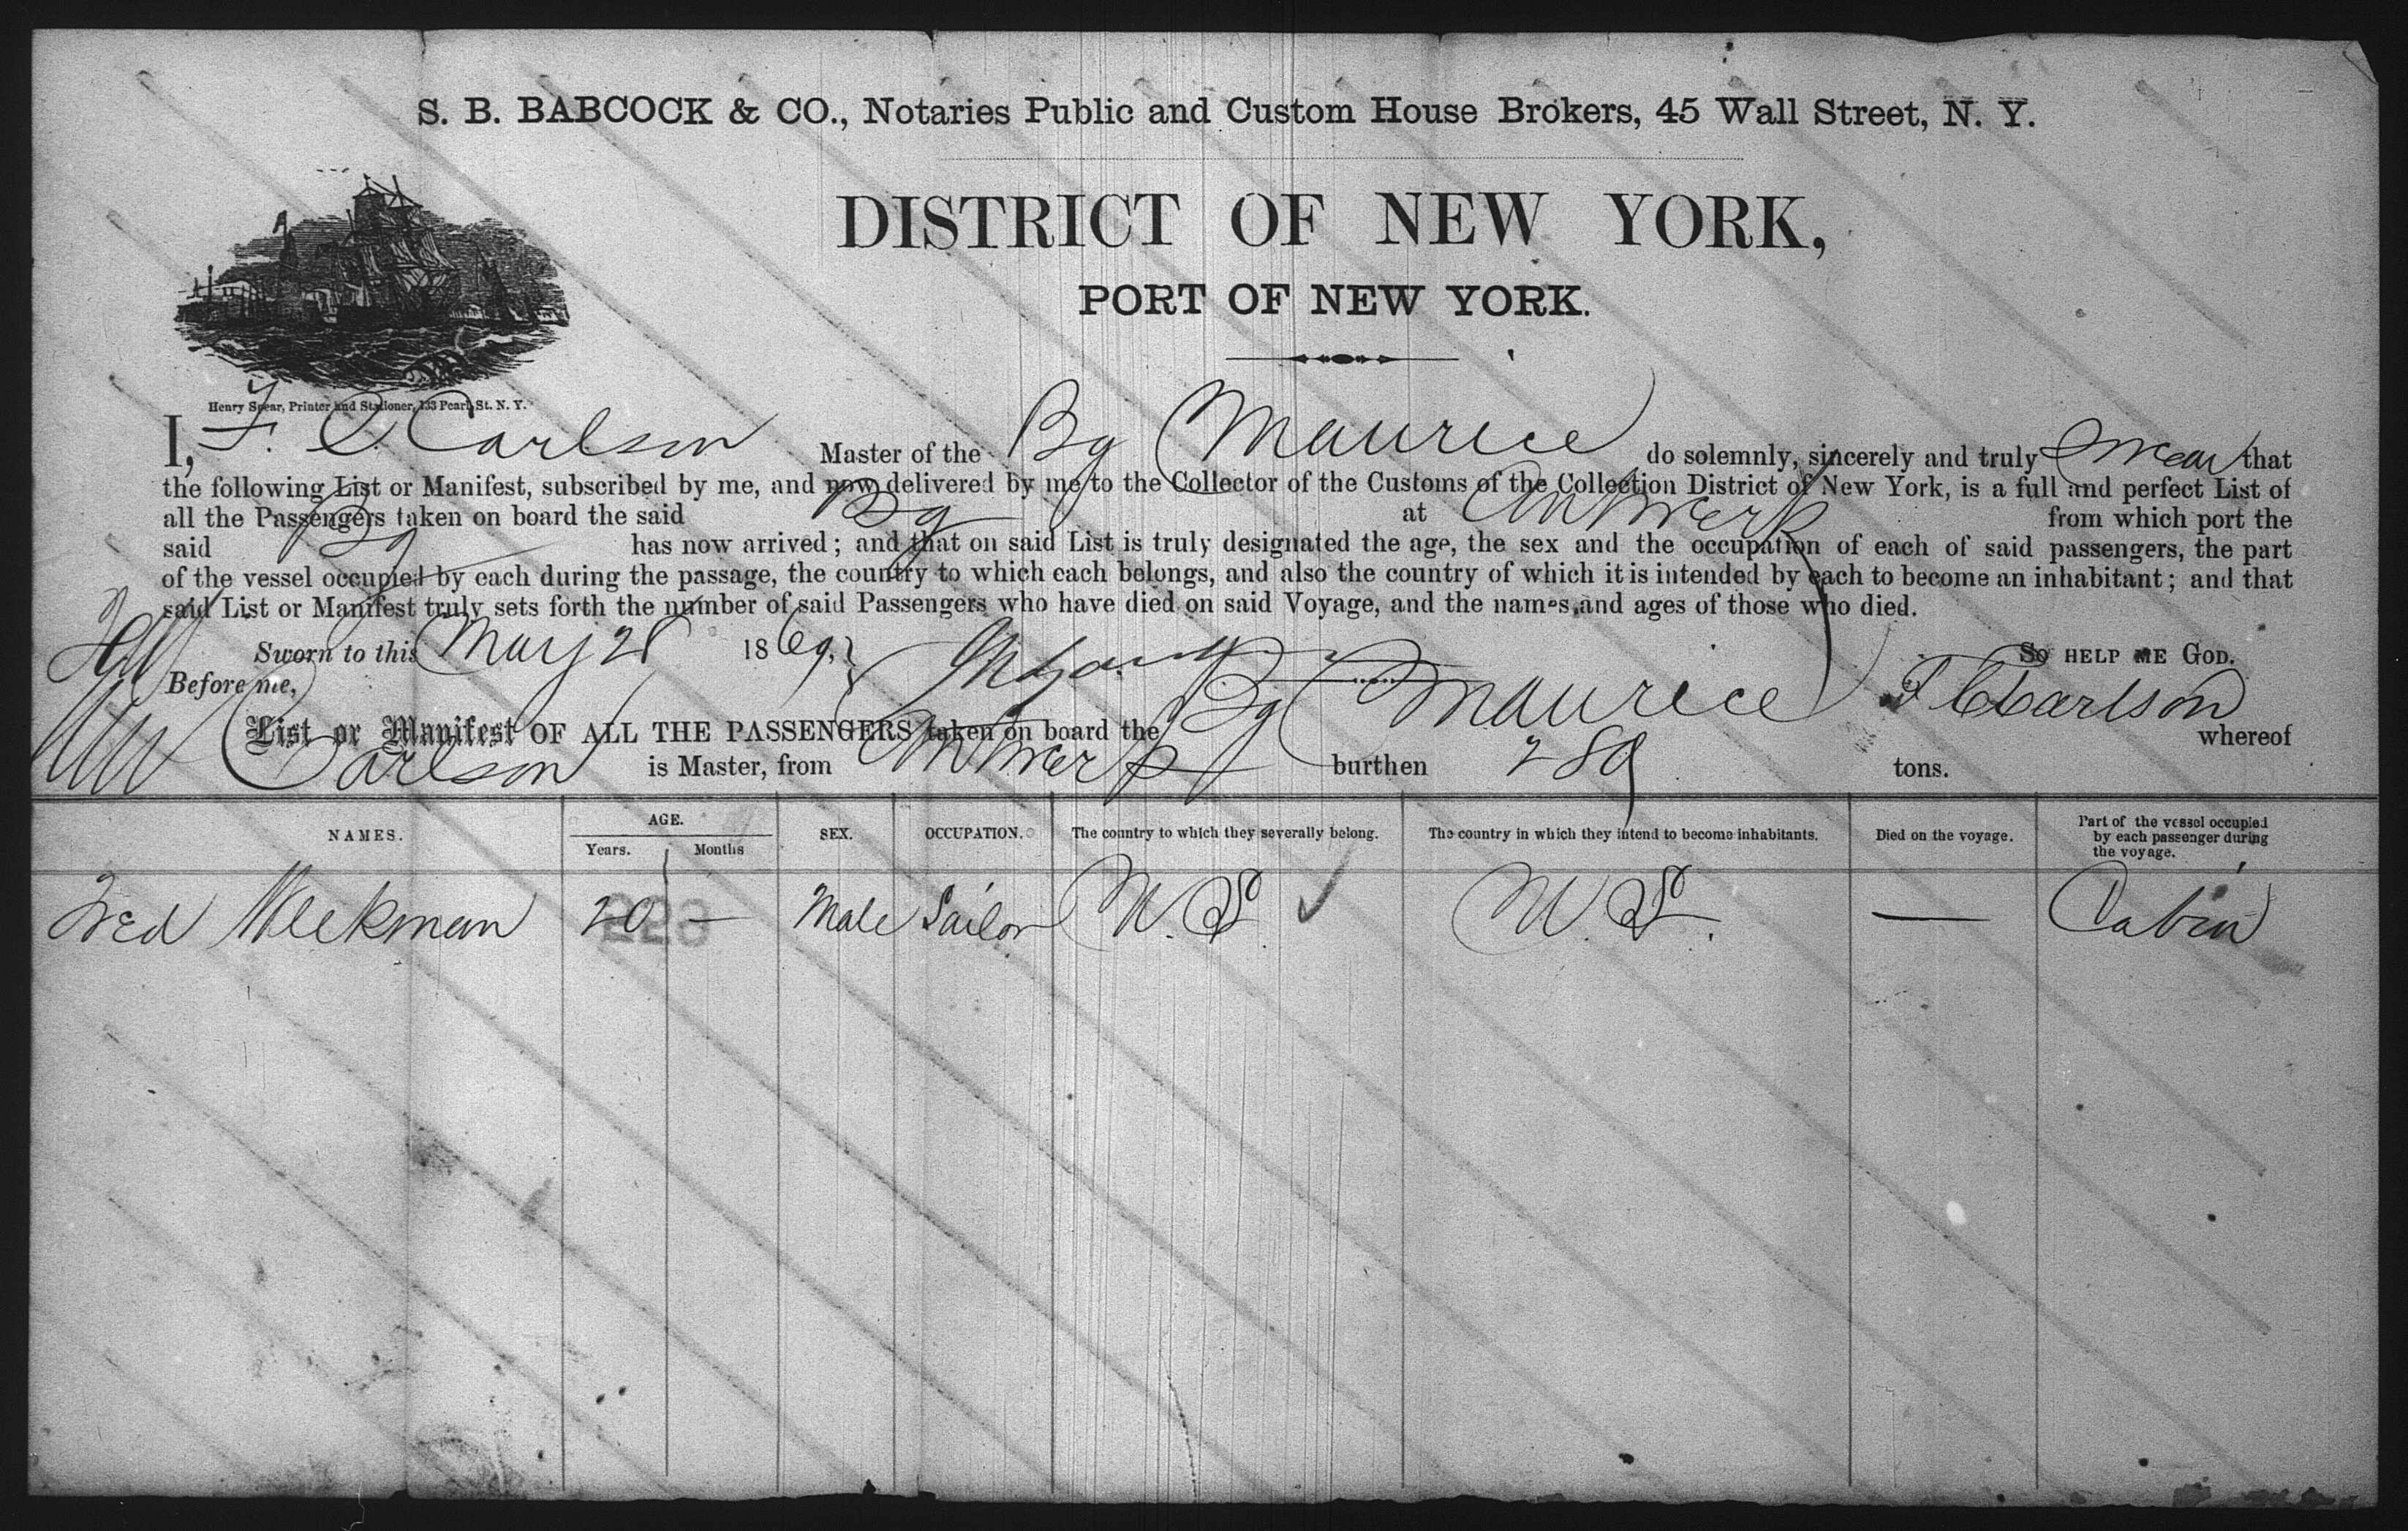 S. B. BABCOCK & CO., Notaries Public and Custom House Brokers, 45 Wall Street, N. Y.
DISTRICT OF NEW YORK,
PORT OF NEW YORK.
Henry Spear, Printer and Stationer, 133 Pearl St. N. Y.
I, F. C. Carlson Master of the Bg Maurice do solemnly, sincerely and truly swear that
the following List or Manifest, subscribed by me, and now delivered by me to the Collector of the Customs of the Collection District of New York, is a full and perfect List of
all the Passengers taken on board the said Bg at Antwerp from which port the
said Bg has now arrived; and that on said List is truly designated the age, the sex and the occupation of each of said passengers, the part
of the vessel occupied by each during the passage, the country to which each belongs, and also the country of which it is intended by each to become an inhabitant; and that
said List or Manifest truly sets forth the number of said Passengers who have died on said Voyage, and the names and ages of those who died.
Sworn to this May 28 1869, So HELP ME GOD.
Before me, F C Carlson
List or Manifest OF ALL THE PASSENGERS taken on board the Bg Maurice whereof
Carlson is Master, from Antwerp burthen 289 tons.
NAMES. AGE. Years. Months SEX. OCCUPATION. The country to which they severally belong. The country in which they intend to become inhabitants. Died on the voyage. Part of the vessel occupied by each passenger during the voyage.
Fred 20 — Male Sailor U.S. ✓ U.S. — Cabin
223